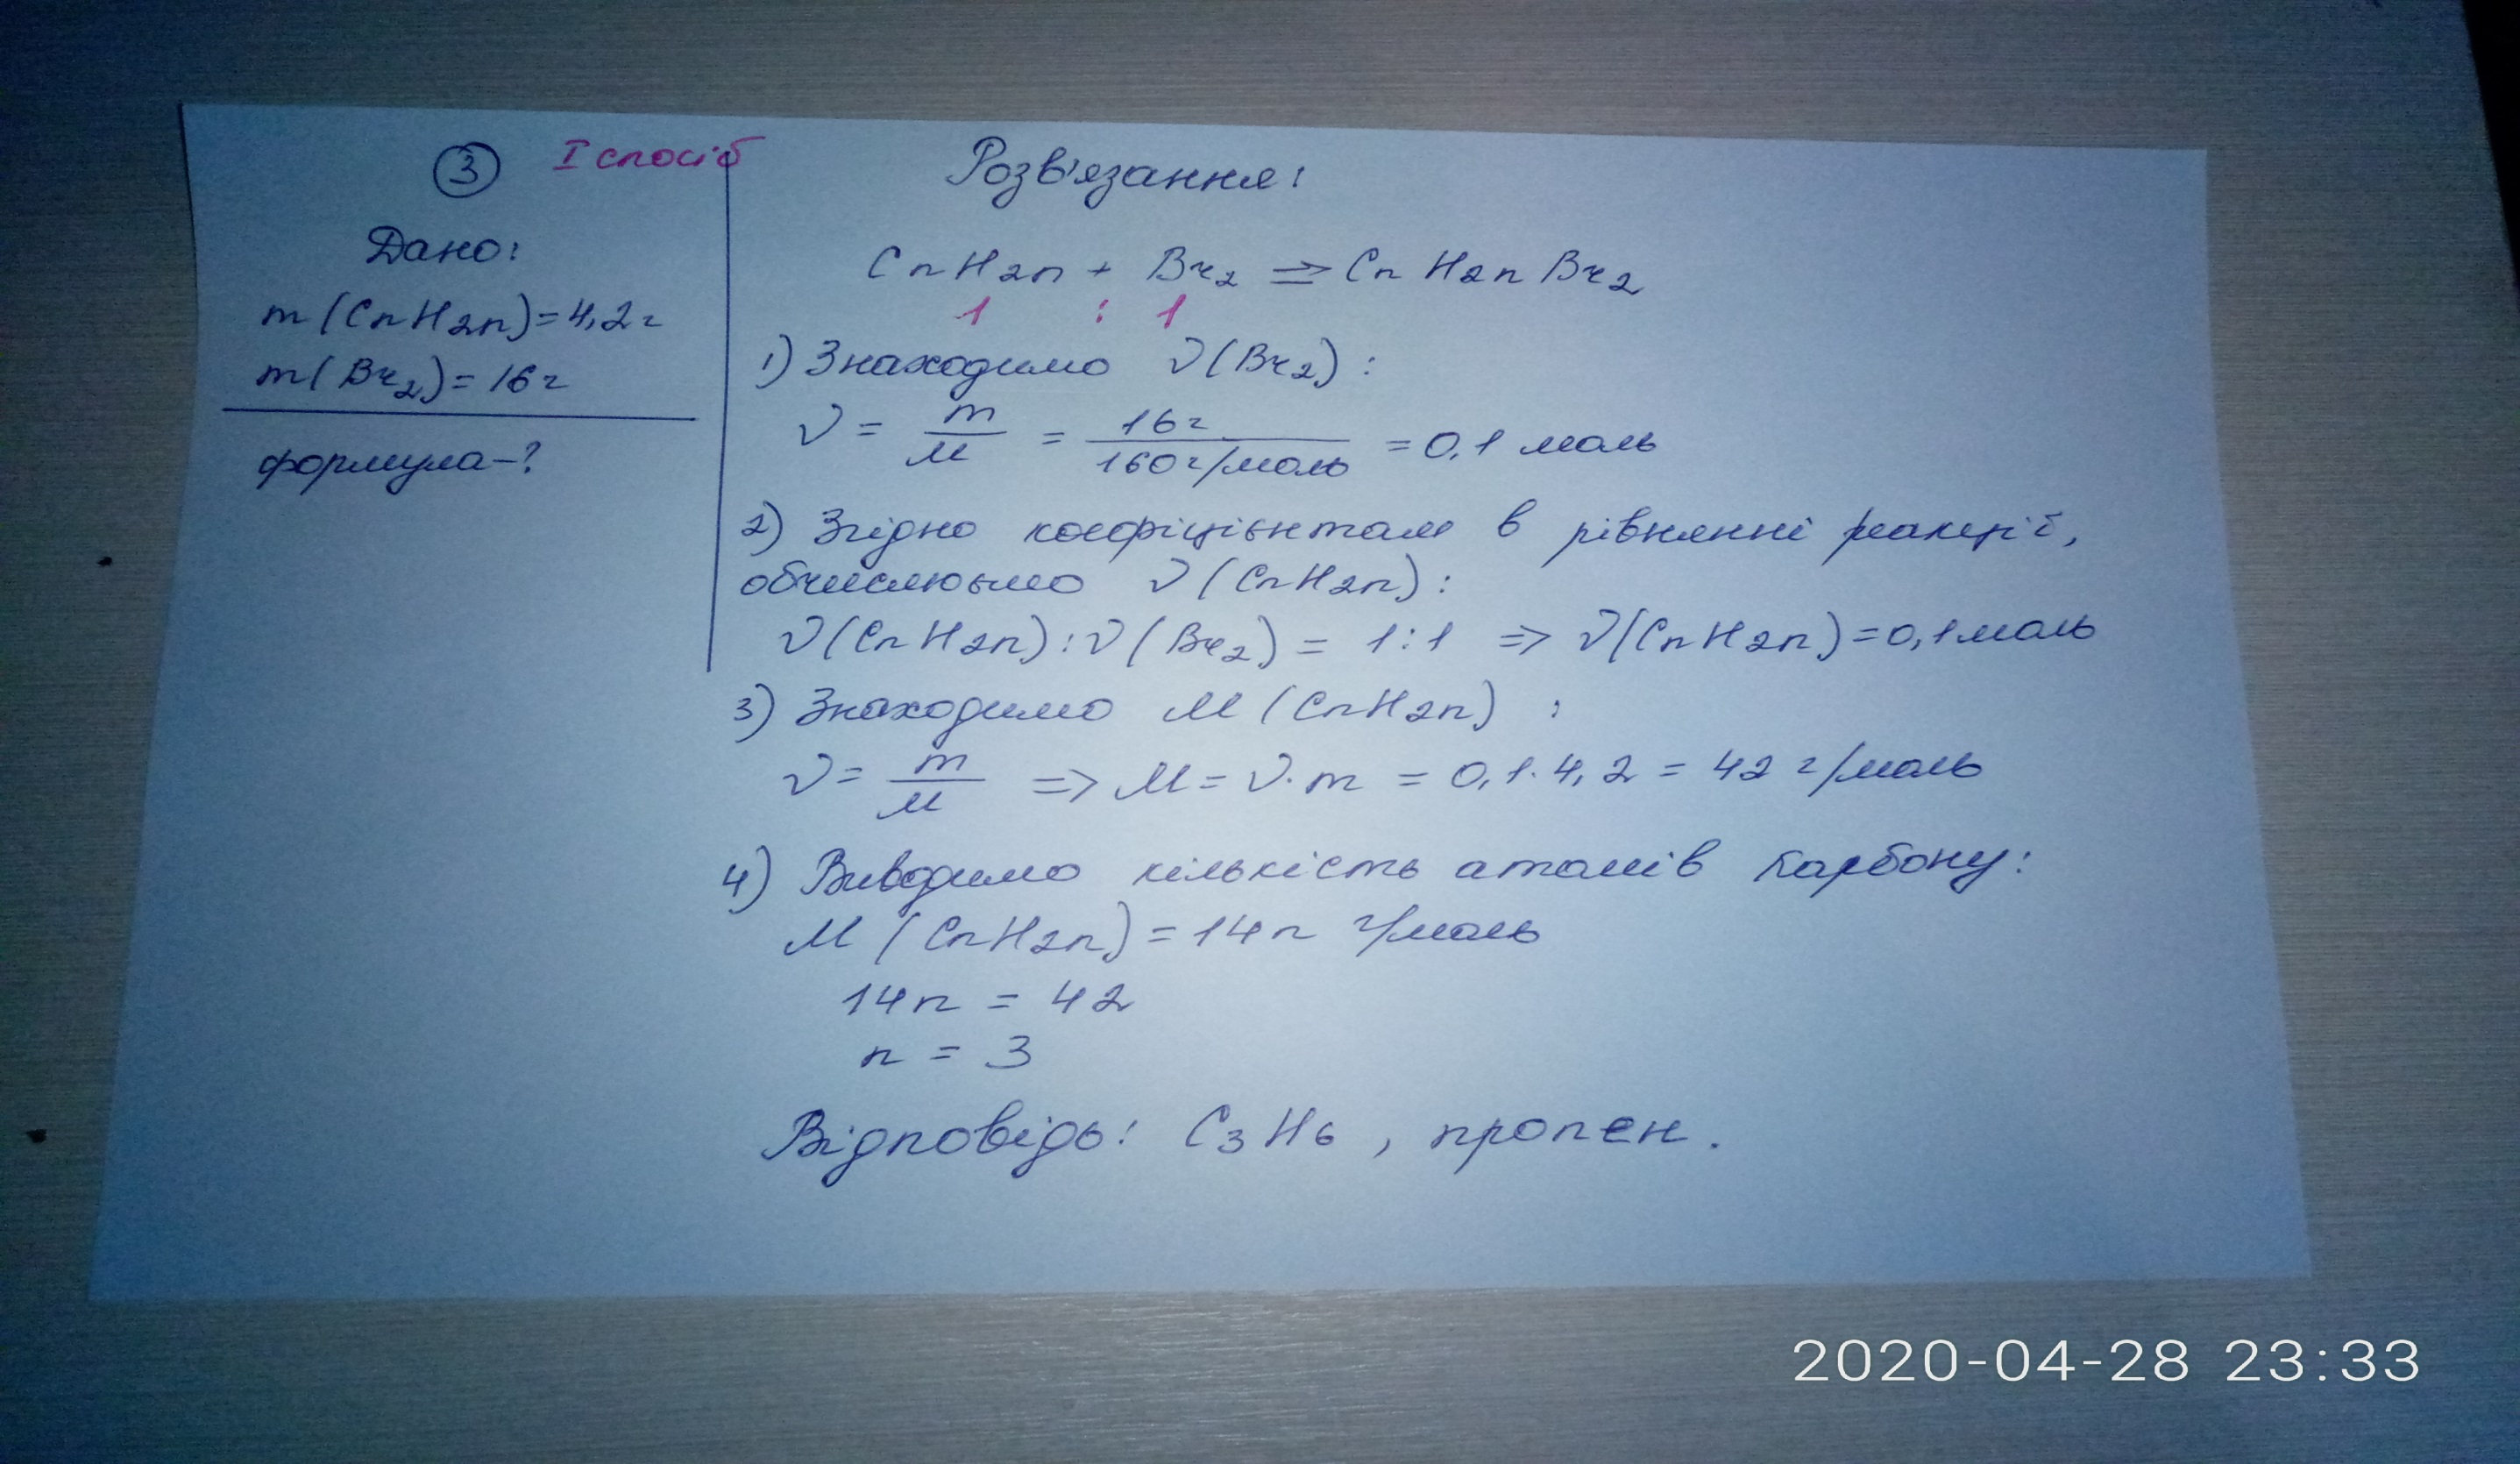 3 I спосіб
Дано:
m (CnH2n) = 4,2 г
m (Br2) = 16 г
формула - ?
Розв'язання:
CnH2n + Br2 => CnH2nBr2
1 : 1
1) Знаходимо ν(Br2) :
ν = m/M = 16 г / 160 г/моль = 0,1 моль
2) Згідно коефіцієнтам в рівнянні реакції,
обчислюємо ν (CnH2n) :
ν(CnH2n) : ν(Br2) = 1 : 1 => ν(CnH2n) = 0,1 моль
3) Знаходимо M (CnH2n) :
ν = m/M => M = ν · m = 0,1 · 4,2 = 42 г/моль
4) Виводимо кількість атомів Карбону:
M (CnH2n) = 14n г/моль
14n = 42
n = 3
Відповідь: C3H6 , пропен.
2020-04-28 23:33